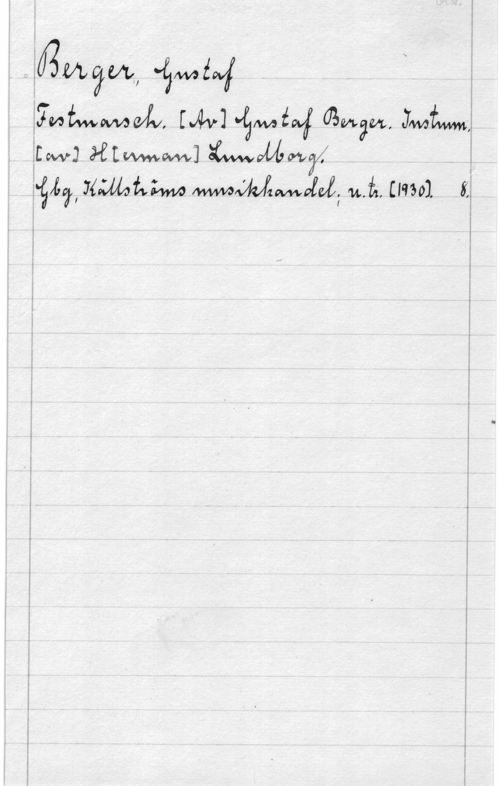 Berger, Gustaf
Festmarsch. [Av] Gustaf Berger. Instrum.
[av] H[erman] Lundborg.
Gbg, Källströms musikhandel; u.tr. [1930]. 8.